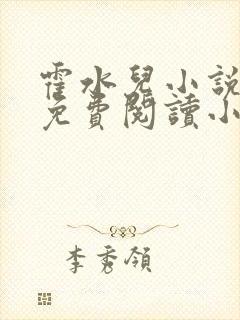 霍水兒小說
免費閱讀小
李秀領